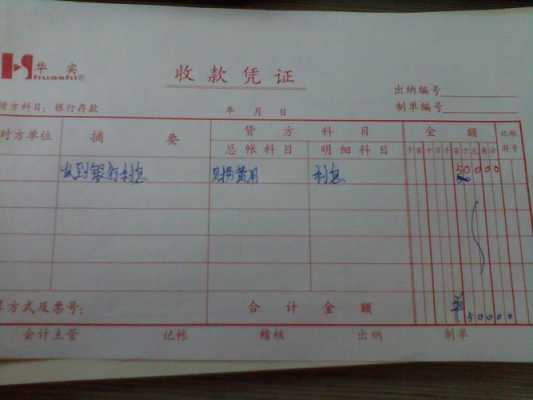 华实
huashi®
收款凭证
出纳编号
借方科目：银行存款 年 月 日 制单编号
对方单位 摘要 贷方科目 金额 记帐符号
总帐科目 明细科目 千百十万千百十元角分
收到银行利息 财务费用 利息 50000
算方式及票号： 合计金额 ¥50000
会计主管 记帐 稽核 出纳 制单